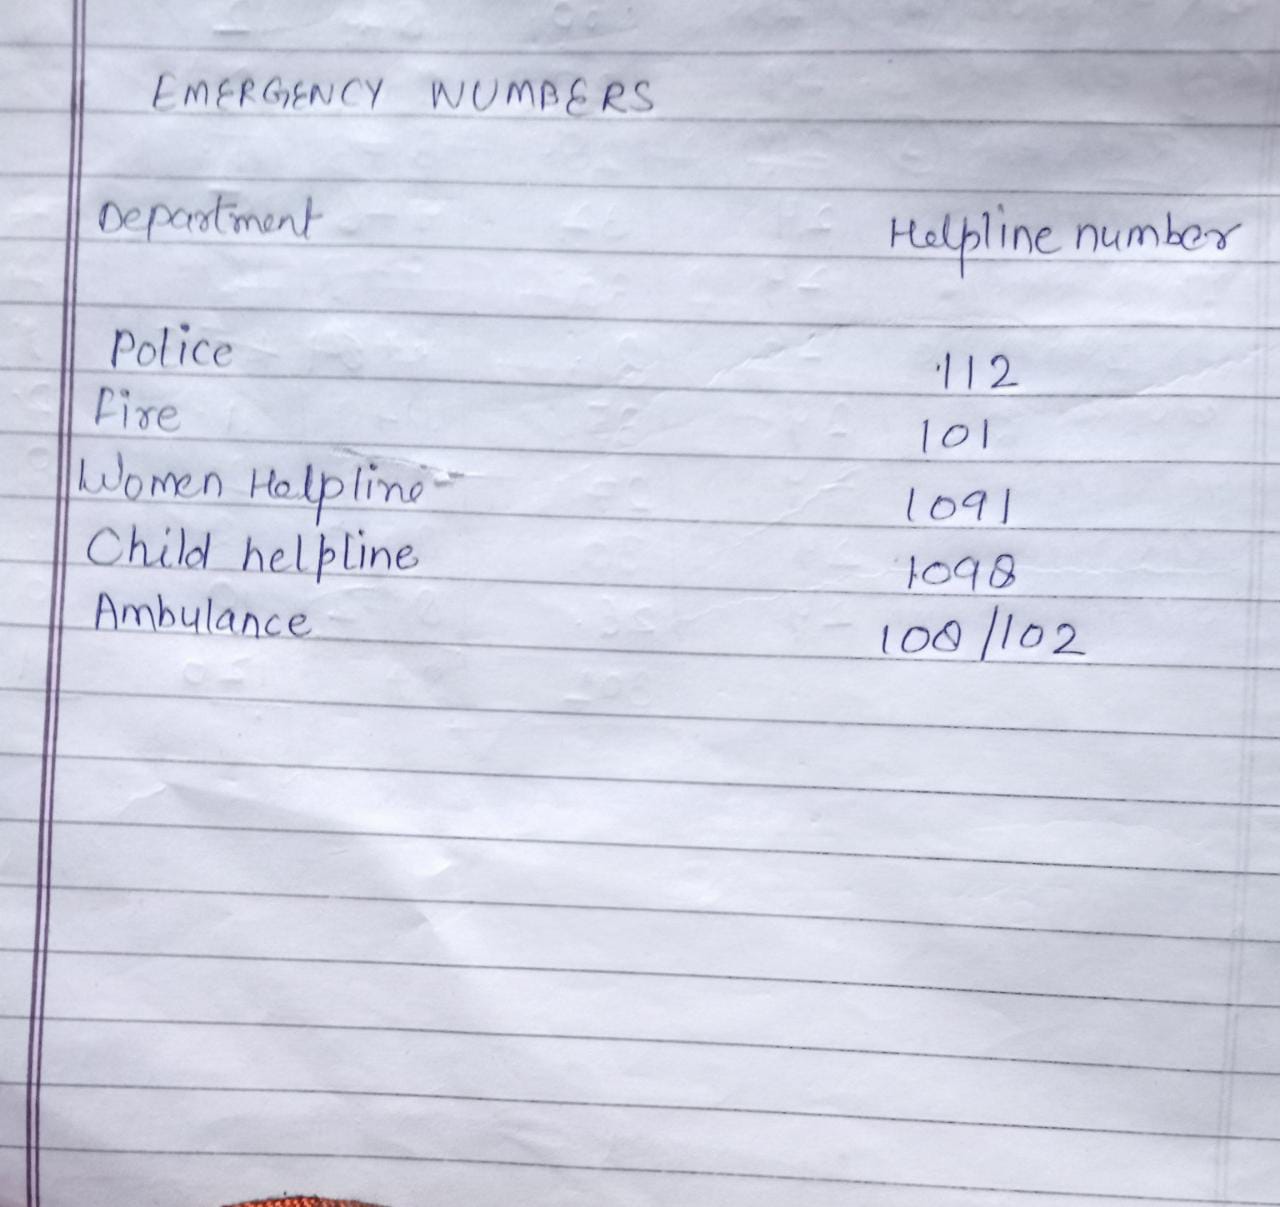 EMERGENCY NUMBERS
Department Helpline number
Police 112
Fire 101
Women Helpline 1091
Child helpline 1098
Ambulance 108/102